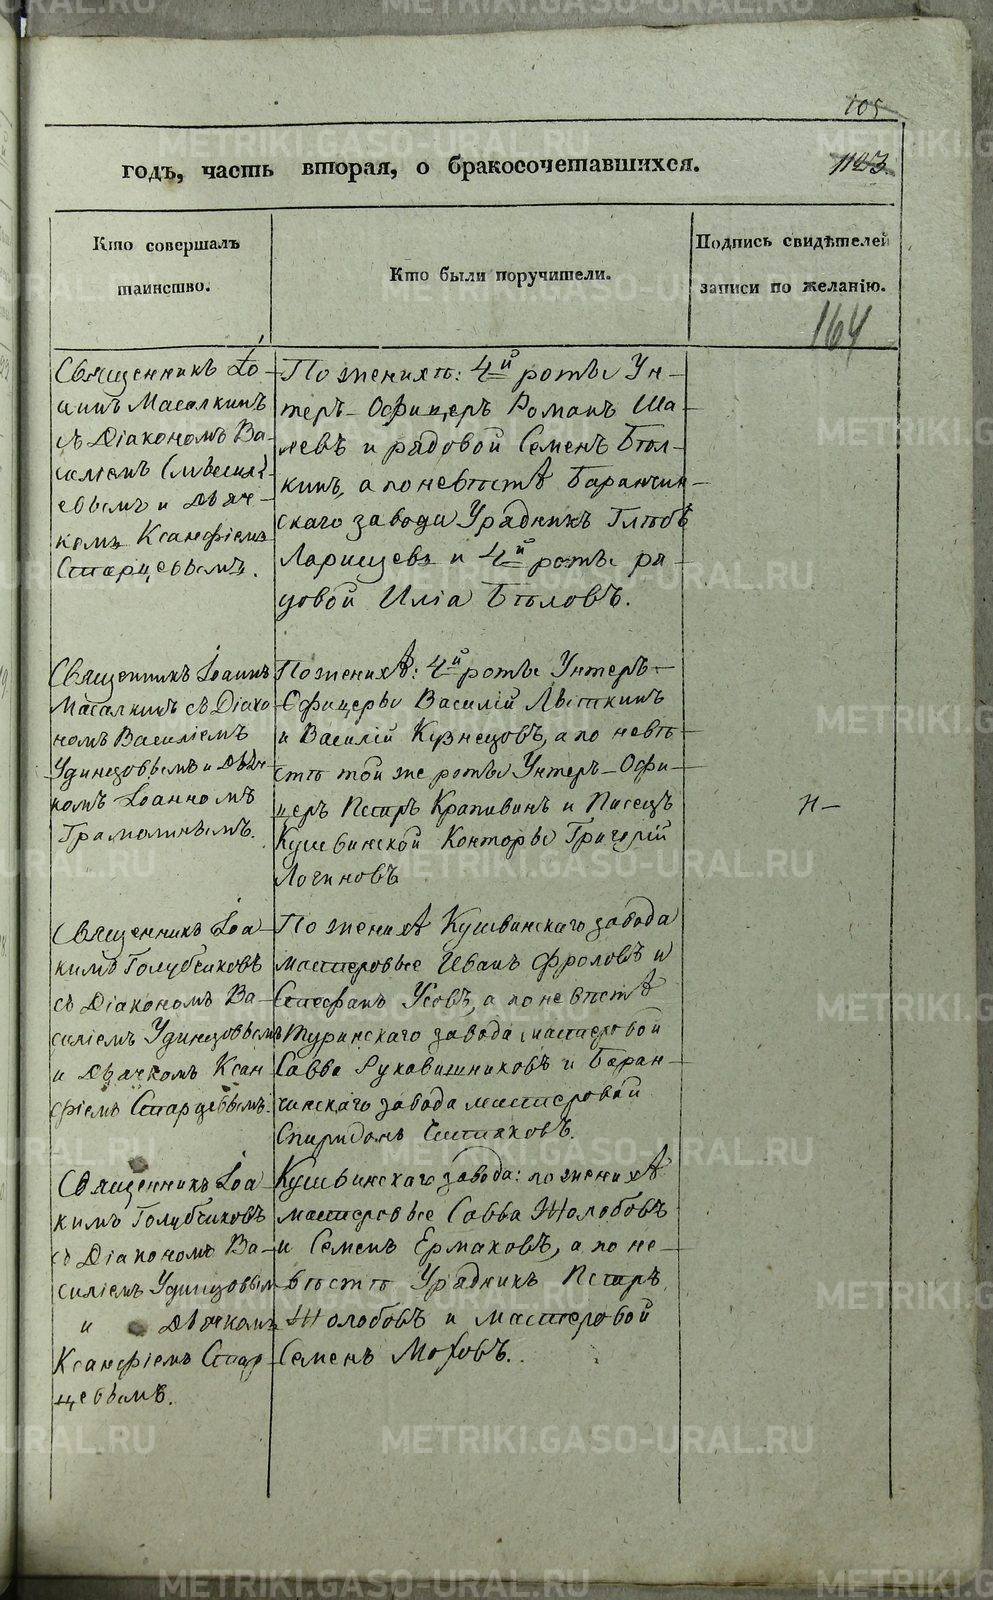 105
годъ, часть вторая, о бракосочетавшихся.
1123
Кто совершалъ
таинство.
Кто были поручители.
Подпись свидѣтелей
записи по желанію.
164
Священникъ Іо-
аннъ Масалкинъ
съ Діакономъ Ва-
силіемъ
евымъ и дьяч-
комъ Ксанфіемъ
Старцевымъ.
По женихѣ: 4й роты Ун-
теръ-Офицеръ Романъ
и рядовой Семенъ Бѣл-
кинъ, а по невѣстѣ Баранчин-
скаго завода Урядникъ Глѣбъ
Ларищевъ и 4й роты ря-
довой Иліа Бѣловъ.
Священникъ Іоаннъ
Масалкинъ съ Діако-
номъ Василіемъ
Удинцовымъ и дьяч-
комъ Іоанномъ
Грамолинымъ.
По женихѣ: 4й роты Унтеръ-
Офицеры Василій Лѣткинъ
и Василій Кузнецовъ, а по невѣ-
стѣ той же роты Унтеръ-Офи-
церъ Петръ Крапивинъ и Писецъ
Кушвинской Конторы Григорій
Логиновъ
Н-
Священникъ Іоа-
кимъ Голубчиковъ
съ Діакономъ Ва-
силіемъ Удинцовымъ
и дьячкомъ Ксан
фіемъ Старцевымъ.
По женихѣ Кушвинскаго завода
мастеровые Иванъ Фроловъ и
Стефанъ Усовъ, а по невѣстѣ
Туринскаго завода мастеровой
Савва Рукавишниковъ и Баран-
чинскаго завода мастеровой
Спиридонъ Чистяковъ.
Священникъ Іоа-
кимъ Голубчиковъ
съ Діакономъ Ва-
силіемъ Удинцовым
и дьячкомъ
Ксанфіемъ Стар-
цевымъ.
Кушвинскаго завода: по женихѣ
мастеровые Савва Жолобовъ
и Семенъ Ермаковъ, а по не-
вѣстѣ Урядникъ Петръ
Жолобовъ и мастеровой
Семенъ Моховъ.
METRIKI.GASO-URAL.RU